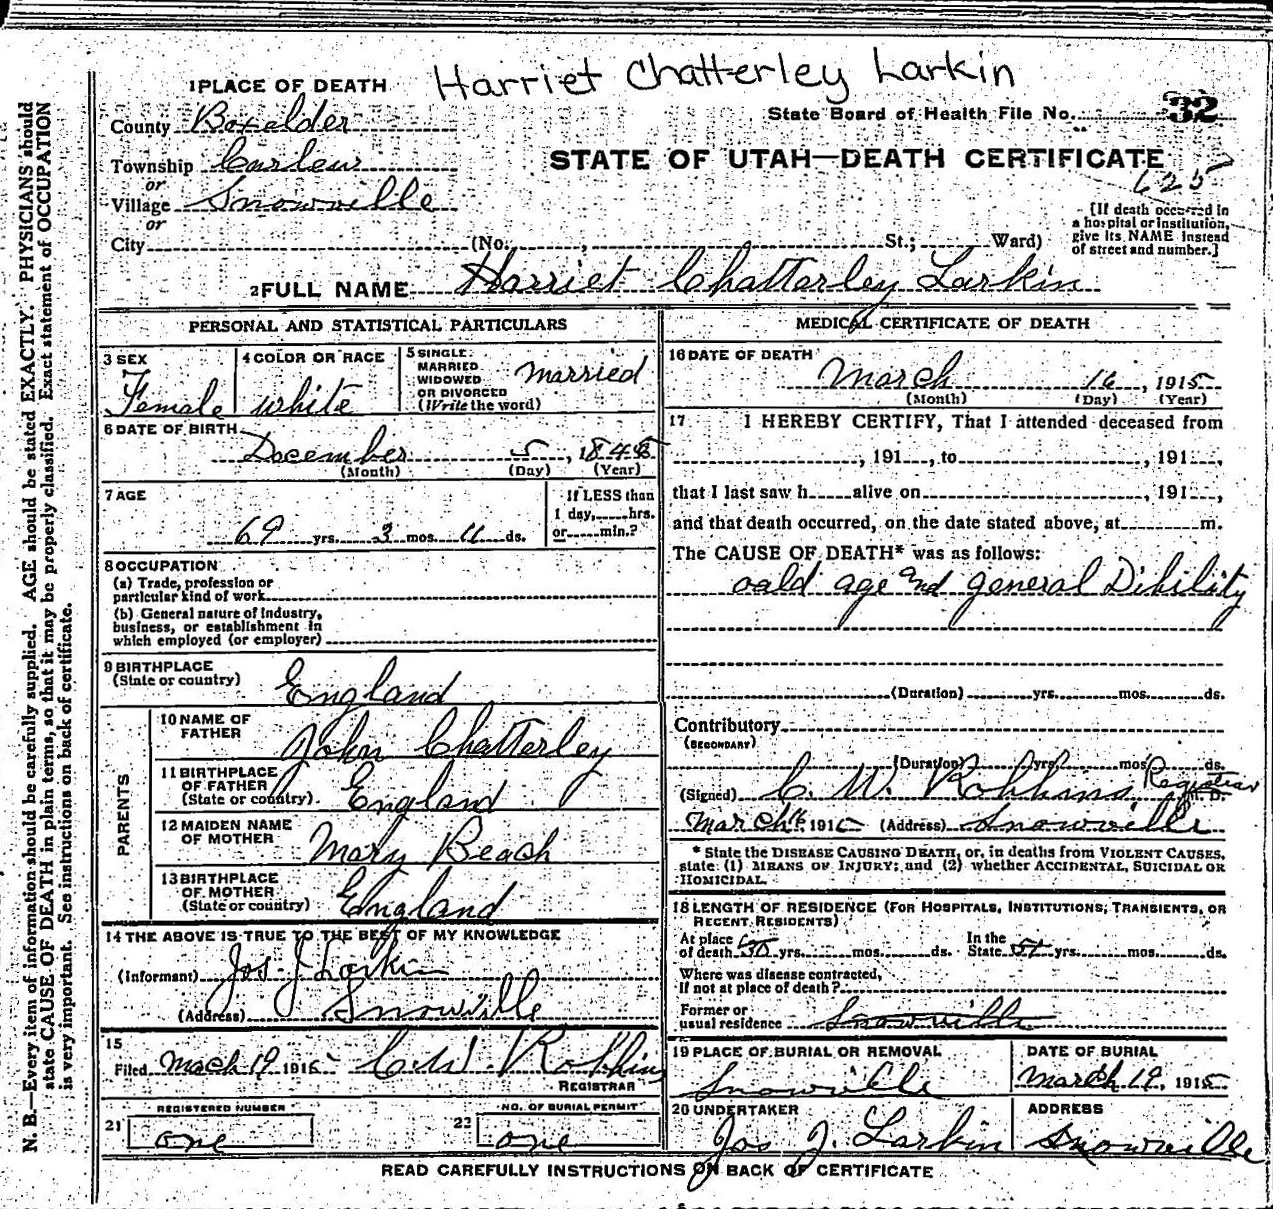 Harriet Chatterley Larkin
1 PLACE OF DEATH
State Board of Health File No. 32
County Boxelder
STATE OF UTAH—DEATH CERTIFICATE
625
Township Curlew
or
Village Snowville
or
City (No. , St.; Ward)
[If death occurred in
a hospital or institution,
give its NAME instead
of street and number.]
2 FULL NAME Harriet Chatterley Larkin
PERSONAL AND STATISTICAL PARTICULARS
3 SEX
Female
4 COLOR OR RACE
white
5 SINGLE
MARRIED
WIDOWED
OR DIVORCED
(Write the word)
married
6 DATE OF BIRTH
December 5, 1845
(Month) (Day) (Year)
7 AGE
69 yrs. 3 mos. 11 ds.
If LESS than
1 day, hrs.
or min.?
8 OCCUPATION
(a) Trade, profession or
particular kind of work
(b) General nature of industry,
business, or establishment in
which employed (or employer)
9 BIRTHPLACE
(State or country)
England
PARENTS
10 NAME OF
FATHER
John Chatterley
11 BIRTHPLACE
OF FATHER
(State or country)
England
12 MAIDEN NAME
OF MOTHER
Mary Beach
13 BIRTHPLACE
OF MOTHER
(State or country)
England
14 THE ABOVE IS TRUE TO THE BEST OF MY KNOWLEDGE
(Informant) Jos. J Larkin
(Address) Snowville
15
Filed March 19 1915 C. W. Robbins
REGISTRAR
REGISTERED NUMBER
21 one
NO. OF BURIAL PERMIT
22 one
MEDICAL CERTIFICATE OF DEATH
16 DATE OF DEATH
March 16, 1915
(Month) (Day) (Year)
17 I HEREBY CERTIFY, That I attended deceased from
, 191 , to , 191 ,
that I last saw h alive on , 191 ,
and that death occurred, on the date stated above, at m.
The CAUSE OF DEATH* was as follows:
oald age and general Dibility
(Duration) yrs. mos. ds.
Contributory
(SECONDARY)
(Duration) yrs. mos. ds.
(Signed) C. W. Robbins Registrar M. D.
March 16, 1915 (Address) Snowville
* State the DISEASE CAUSING DEATH, or, in deaths from VIOLENT CAUSES,
state (1) MEANS OF INJURY; and (2) whether ACCIDENTAL, SUICIDAL OR
HOMICIDAL.
18 LENGTH OF RESIDENCE (FOR HOSPITALS, INSTITUTIONS, TRANSIENTS, OR
RECENT RESIDENTS)
At place
of death yrs. mos. ds.
In the
State yrs. mos. ds.
Where was disease contracted,
If not at place of death?
Former or
usual residence Snowville
19 PLACE OF BURIAL OR REMOVAL
Snowville
DATE OF BURIAL
March 19, 1915
20 UNDERTAKER
Jos J. Larkin
ADDRESS
Snowville
READ CAREFULLY INSTRUCTIONS ON BACK OF CERTIFICATE
N. B.—Every item of information should be carefully supplied. AGE should be stated EXACTLY. PHYSICIANS should
state CAUSE OF DEATH in plain terms, so that it may be properly classified. Exact statement of OCCUPATION
is very important. See instructions on back of certificate.